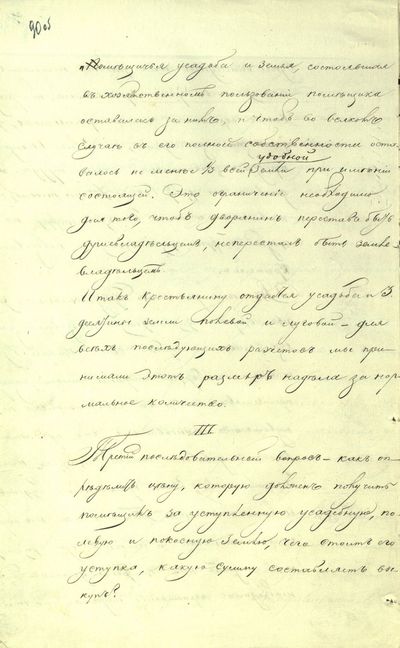 90 об
Помѣщичья усадьба и земля, состоявшая
въ хозяйственномъ пользованіи помѣщика
оставалась за нимъ, и чтобъ во всякомъ
случаѣ въ его полной собственности оста
удобной
валось не менѣе ⅓ всей земли при имѣніи
состоящей. Это ограниченіе необходимо
для того, чтобъ дворянинъ переставъ быть
душевладѣльцемъ, не пересталъ быть земле-
владѣльцемъ.
Итакъ крестьянину отдается усадьба и 3
десятины земли полевой и луговой – для
всѣхъ послѣдующихъ разчетовъ мы при-
нимали этотъ размѣръ надѣла за нор
мальное количество.
III
Третій послѣдовательный вопросъ – какъ оп
редѣлить цѣну, которую долженъ получить
помѣщикъ за уступленную усадебную, по-
левую и покосную землю, чего стоитъ его
уступка, какую сумму составляетъ вы-
купъ?